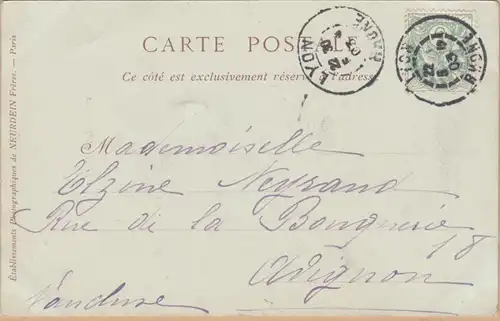 CARTE POSTALE
Ce côté est exclusivement réservé à l'adresse
LYON RHONE
LYON RHONE
Établissements photographiques de NEURDEIN Frères. — Paris
Mademoiselle
Elzine Neyrand
Rue de la Bouquerie 18
Avignon
Vaucluse